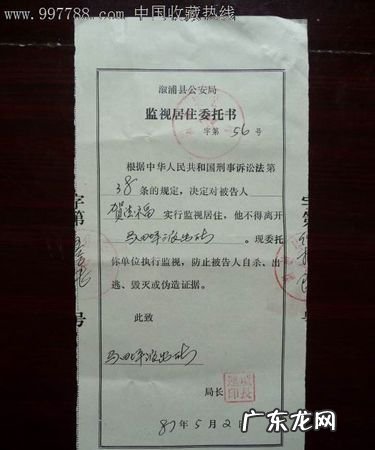 www.997788.com 中国收藏热线
溆浦县公安局
监视居住委托书
字第 56 号
根据中华人民共和国刑事诉讼法第
38 条的规定，决定对被告人
贺 福 实行监视居住，他不得离开
马田坪派出所 。现委托
你单位执行监视，防止被告人自杀、出
逃、毁灭或伪造证据。
此致
马田坪派出所
局长
87年5月2日
字第
号
字第
号
广东龙网